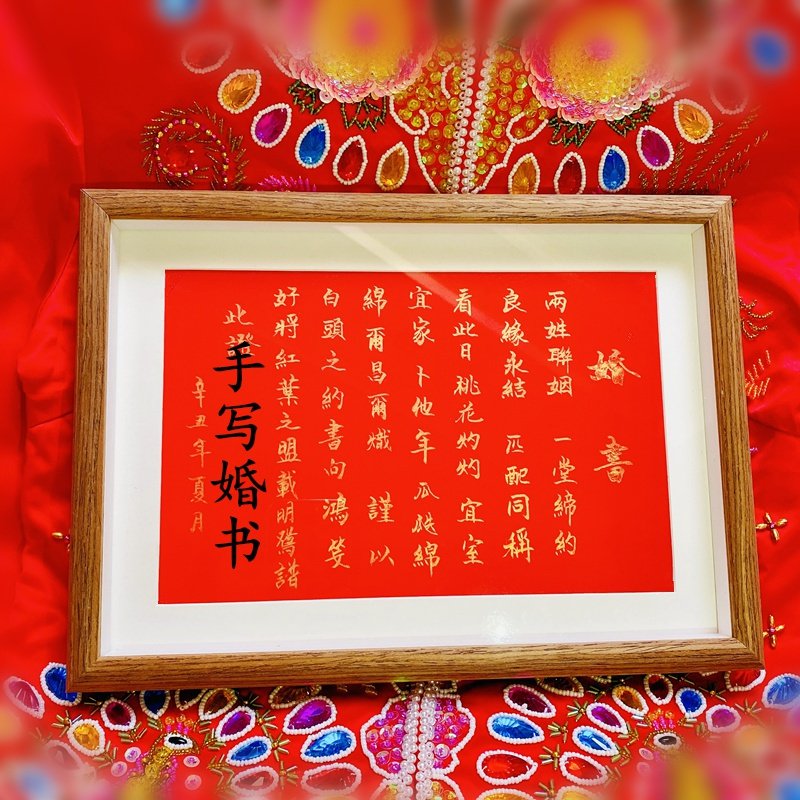 婚書
兩姓聯姻 一堂締約
良緣永結 匹配同稱
看此日桃花灼灼 宜室
宜家 卜他年瓜瓞綿
綿 爾昌爾熾 謹以
白頭之約書向鴻箋
好將紅葉之盟載明鴛譜
此證
辛丑年夏月
手写婚书